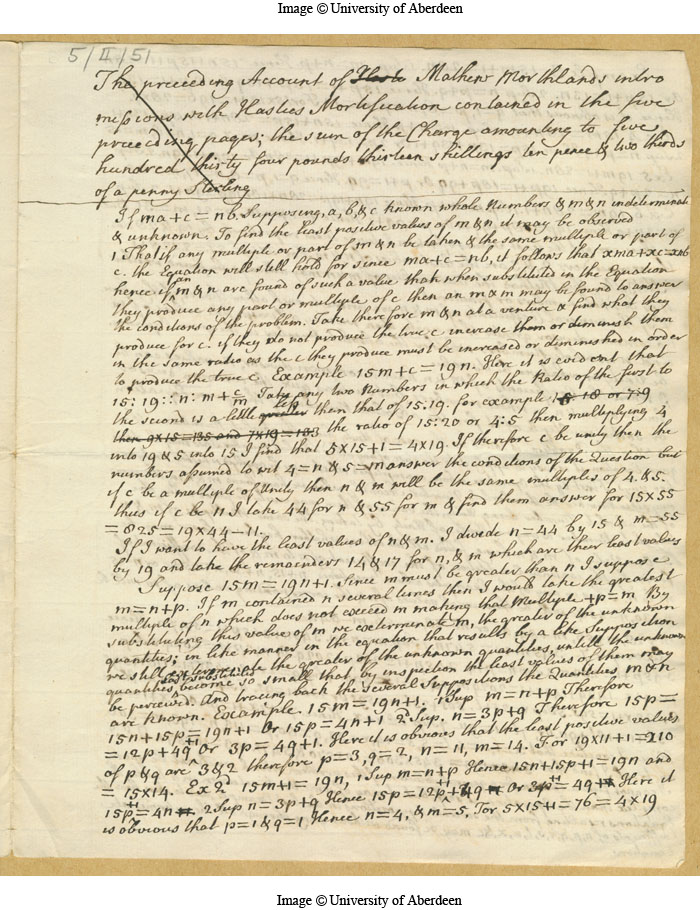 Image © University of Aberdeen
5/II/51
The preceeding Account of Mathew Morthlands intro
missions with Hasties Mortification contained in the five
preceeding pages; the sum of the Charge amounting to five
hundred thirty four pounds thirteen shillings ten pence & two thirds
of a penny Sterling
If ma+c=nb. Supposing, a, b, & c known whole Numbers & m & n indeterminate
& unknown. To find the least positive values of m & n it may be observed
1 That if any multiple or part of m & n be taken & the same multiple or part of
c. the Equation will still hold for since ma+c=nb, it follows that xma+xc=xnb
hence if an m & n are found of such a value that when substituted in the Equation
they produce any part or multiple of c then an m & n may be found to answer
the conditions of the problem. Take therefore m & n at a venture & find what they
produce for c. if they do not produce the true c increase them or diminish them
in the same ratio as the c they produce must be increased or diminished in order
to produce the true c. Example 15m+c=19n. Here it is evident that
15:19::n:m+c/15 Take any two Numbers in which the Ratio of the first to
the second is a little less greater then that of 15:19. for example 15 18 or 7:9
then 9X15=135 and 7X19=133 the ratio of 15:20 or 4:5 then multiplying 4
into 19 & 5 into 15 I find that 5X15+1=4X19. If therefore c be unity then the
numbers assumed to wit 4=n & 5=m answer the conditions of the Question but
if c be a multiple of Unity then n & m will be the same multiples of 4. & 5.
thus if c be 11 I take 44 for n & 55 for m & find them answer for 15X55
=825=19X44-11.
If I want to have the least values of n & m. I divide n=44 by 15 & m=55
by 19 and take the remainders 14 & 17 for n, & m which are their least values
Suppose 15m=19n+1. Since m must be greater than n I suppose
m=n+p. If m contained n several times then I would take the greatest
multiple of n which does not exceed m making that Multiple +p=m By
substituting this value of m we exterminate m, the greater of the unknown
quantities; in like manner in the equation that results by a like Supposition
we still exterminate the greater of the unknown quantities, untill the unknown
quantities last substituted become so small that by inspection the least values of them may
be perceived. And tracing back the several Suppositions the Quantities m & n
are known. Example. 15m=19n+1. 1 Sup m=n+p Therefore
15n+15p=19n+1 Or 15p=4n+1 2 Sup. n=3p+q Therefore 15p=
=12p+4q+1 Or 3p=4q+1. Here it is obvious that the least positive values
of p & q are 3 & 2 therefore p=3, q=2, n=11, m=14. For 19X11+1=210
=15X14. Ex 2d 15m+1=19n, 1 Sup m=n+p Hence 15n+15p+1=19n and
15p+1=4n 2 Sup n=3p+q Hence 15p+1=12p+4q Or 3p+1=4q Here it
is obvious that p=1 & q=1 Hence n=4, & m=5, For 5X15+1=76=4X19
Image © University of Aberdeen